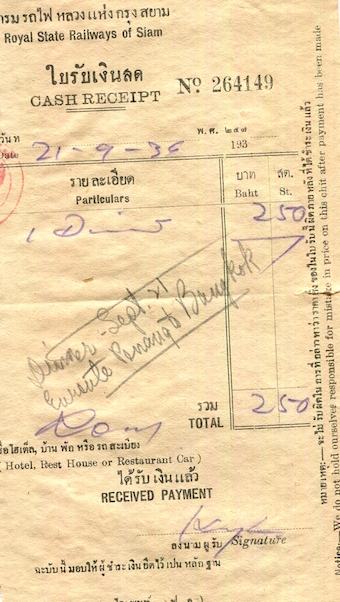 กรม รถไฟ หลวง แห่ง กรุง สยาม
Royal State Railways of Siam
ใบรับเงินสด
CASH RECEIPT
No 264149
วันที่
พ. ศ. ๒๔๗
Date 21-9-36 193
รายละเอียด บาท สต.
Particulars Baht St.
1 Dinner 250
Dinner Sept. 21
Enroute Penang to Bangkok
รวม
TOTAL 250
ชื่อโฮเต็ล, บ้าน พัก หรือ รถ สะเบียง
( Hotel, Rest House or Restaurant Car )
ได้ รับ เงิน แล้ว
RECEIVED PAYMENT
ลงนาม ผู้ รับ Signature
ฉะบับ นี้ มอบให้ ผู้ ชำระ เงิน ยึดไว้ เป็น หลักฐาน
หมายเหตุ:—จะไม่รับผิดในการที่
Notice:—We do not hold ourselves responsible for mistake in price on this chit after payment has been made